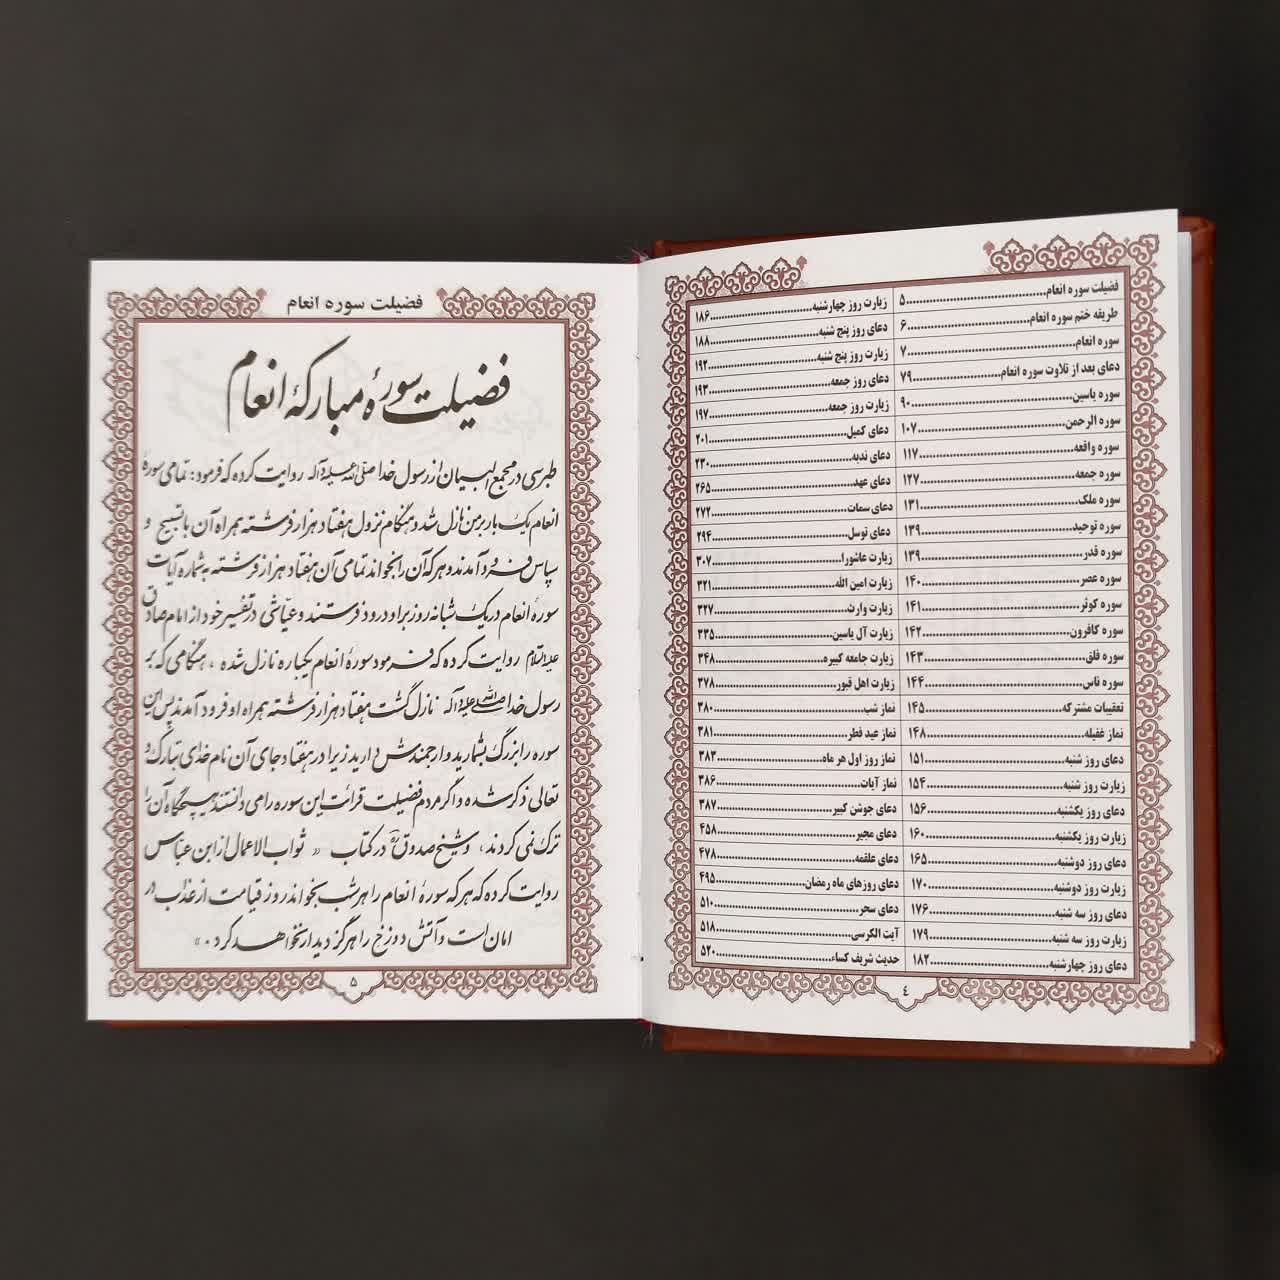 فضیلت سوره انعام.......................................۵
طریقه ختم سوره انعام...................................۶
سوره انعام.............................................۷
دعای بعد از تلاوت سوره انعام...........................۷۹
سوره یاسین.............................................۹۰
سوره الرحمن............................................۱۰۷
سوره واقعه.............................................۱۱۷
سوره جمعه..............................................۱۲۷
سوره ملک...............................................۱۳۱
سوره توحید.............................................۱۳۹
سوره قدر...............................................۱۳۹
سوره عصر...............................................۱۴۰
سوره کوثر..............................................۱۴۱
سوره کافرون............................................۱۴۲
سوره فلق...............................................۱۴۳
سوره ناس...............................................۱۴۴
تعقیبات مشترکه.........................................۱۴۵
نماز غفیله.............................................۱۴۸
دعای روز شنبه..........................................۱۵۱
زیارت روز شنبه.........................................۱۵۴
دعای روز یکشنبه........................................۱۵۶
زیارت روز یکشنبه.......................................۱۶۰
دعای روز دوشنبه........................................۱۶۵
زیارت روز دوشنبه.......................................۱۷۰
دعای روز سه شنبه.......................................۱۷۶
زیارت روز سه شنبه......................................۱۷۹
دعای روز چهارشنبه......................................۱۸۲
زیارت روز چهارشنبه.....................................۱۸۶
دعای روز پنج شنبه......................................۱۸۸
زیارت روز پنج شنبه.....................................۱۹۲
دعای روز جمعه..........................................۱۹۳
زیارت روز جمعه.........................................۱۹۷
دعای کمیل..............................................۲۰۱
دعای ندبه..............................................۲۳۰
دعای عهد...............................................۲۶۵
دعای سمات..............................................۲۷۲
دعای توسل..............................................۲۹۴
زیارت عاشورا...........................................۳۰۷
زیارت امین الله........................................۳۲۱
زیارت وارث.............................................۳۲۷
زیارت آل یاسین.........................................۳۳۵
زیارت جامعه کبیره......................................۳۴۸
زیارت اهل قبور.........................................۳۷۸
نماز شب................................................۳۸۰
نماز عید فطر...........................................۳۸۱
نماز روز اول هر ماه....................................۳۸۳
نماز آیات..............................................۳۸۶
دعای جوشن کبیر.........................................۳۸۷
دعای مجیر..............................................۴۵۸
دعای علقمه.............................................۴۷۸
دعای روزهای ماه رمضان..................................۴۹۵
دعای سحر...............................................۵۱۰
آیت الکرسی.............................................۵۱۸
حدیث شریف کساء.........................................۵۲۰
٤
فضیلت سوره انعام
فضیلت سورهٔ مبارکهٔ انعام
طبرسی در مجمع البیان از رسول خدا صلی الله علیه و آله روایت کرده که فرمود: تمامی سورهٔ
انعام یک بار بر من نازل شد و هنگام نزول هفتاد هزار فرشته همراه آن با تسبیح و
سپاس فرود آمدند و هر که آن را بخواند تمامی آن هفتاد هزار فرشته به شماره آیات
سورهٔ انعام در یک شبانه روز بر او درود فرستند و عیّاشی در تفسیر خود از امام صادق
علیه السلام روایت کرده که فرمود سورهٔ انعام یکباره نازل شده ، هنگامی که بر
رسول خدا صلی الله علیه و آله نازل گشت هفتاد هزار فرشته همراه او فرود آمدند پس این
سوره را بزرگ بشمارید و ارجمندش دارید زیرا در هفتاد جای آن نام خدای تبارک و
تعالی ذکر شده و اگر مردم فضیلت قرائت این سوره را می دانستند هیچگاه آن را
ترک نمی کردند، و شیخ صدوق ره در کتاب « ثواب الاعمال از ابن عباس
روایت کرده که هر که سورهٔ انعام را هر شب بخواند روز قیامت از عذاب در
امان است و آتش دوزخ را هرگز دیدار نخواهد کرد . »
۵